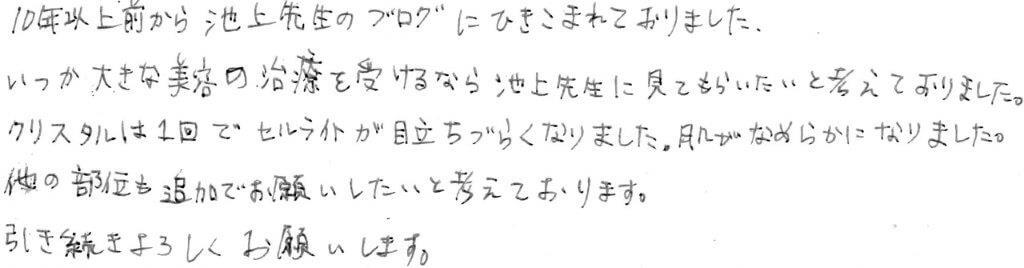 10年以上前から池上先生のブログにひきこまれておりました.
いつか大きな美容の治療を受けるなら池上先生に見てもらいたいと考えておりました。
クリスタルは1回でセルライトが目立ちづらくなりました。肌がなめらかになりました。
他の部位も追加でお願いしたいと考えております。
引き続きよろしくお願いします。